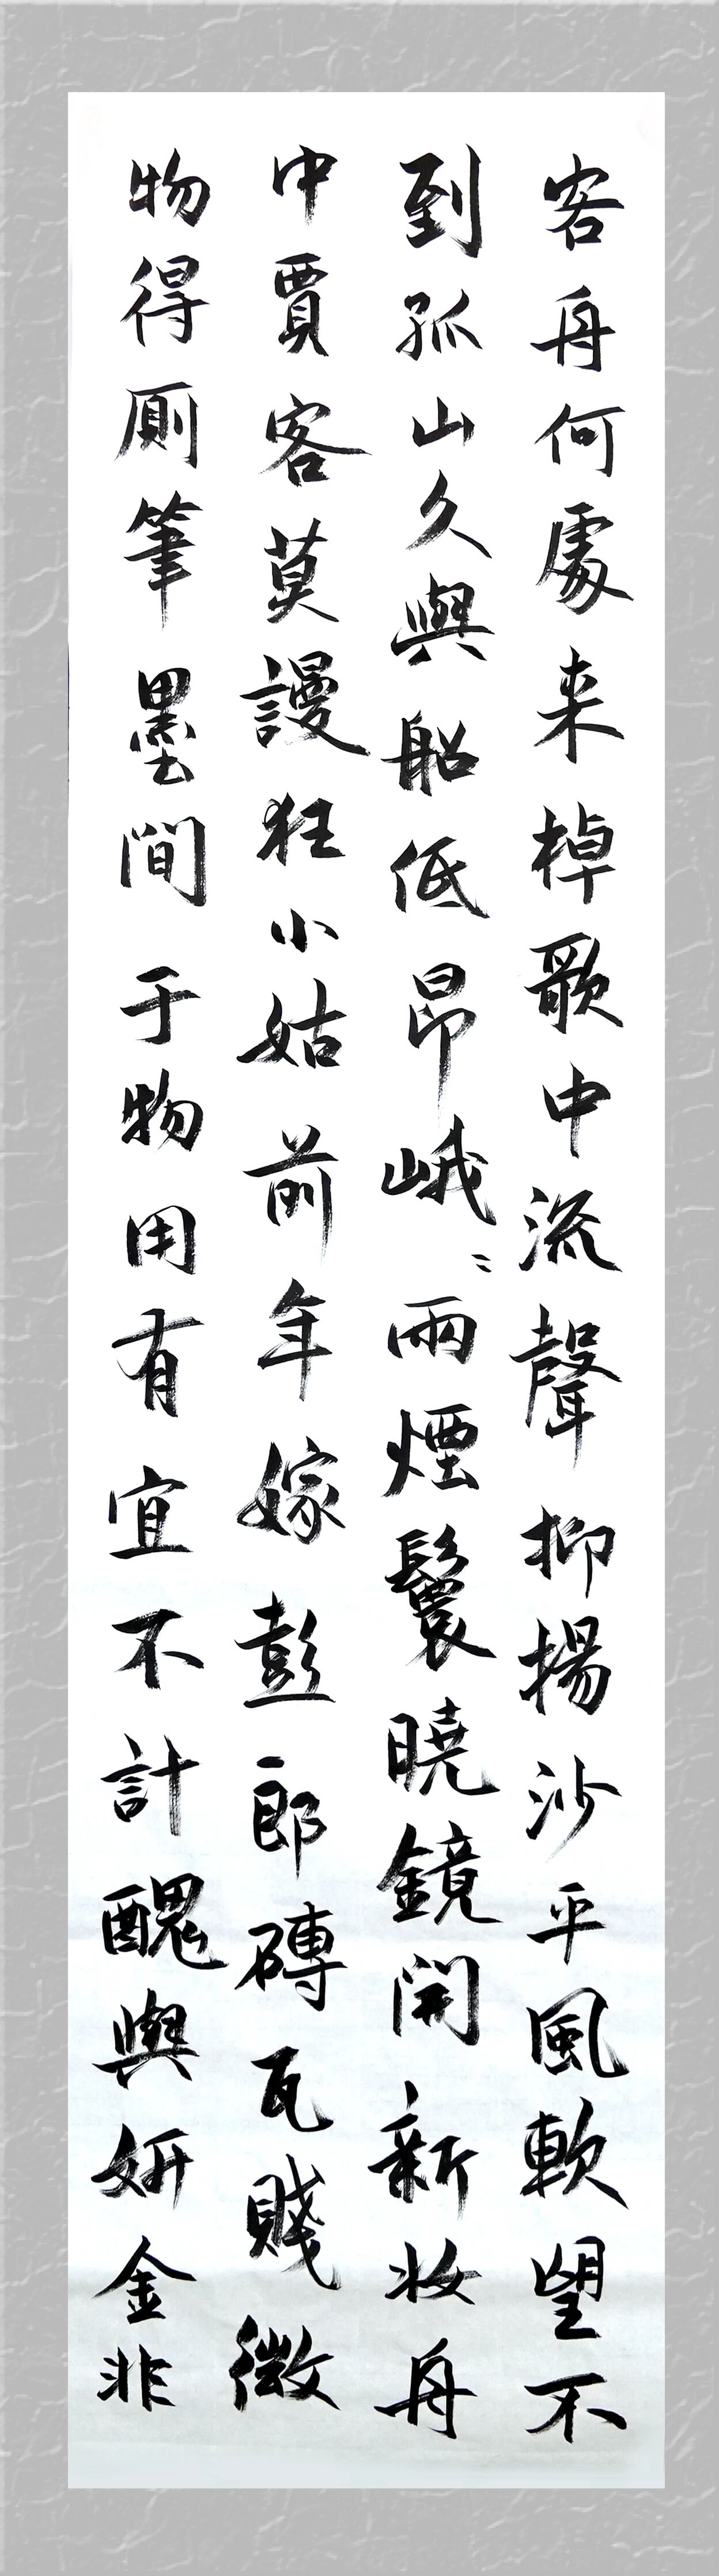 客舟何處来棹歌中流聲抑揚沙平風軟望不
到孤山久與船低昂峨〻兩煙鬟曉鏡開新妝舟
中賈客莫謾狂小姑前年嫁彭郎磚瓦賤微
物得厠筆墨間于物用有宜不計醜與妍金非